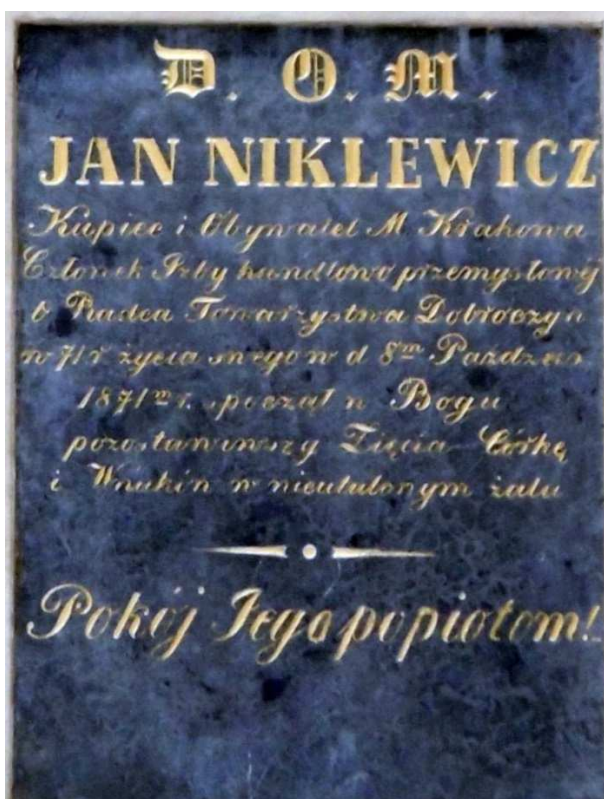 D. O. M.
JAN NIKLEWICZ
Kupiec i Obywatel M Krakowa
Członek Izby handlowo przemysłowéj
b Radca Towarzystwa Dobroczyn
w 71 r życia swego w d 8m Paździer
1871m r. spoczął w Bogu
pozostawiwszy Zięcia Córkę
i Wnuków w nieutulonym żalu
Pokój Jego popiołom!